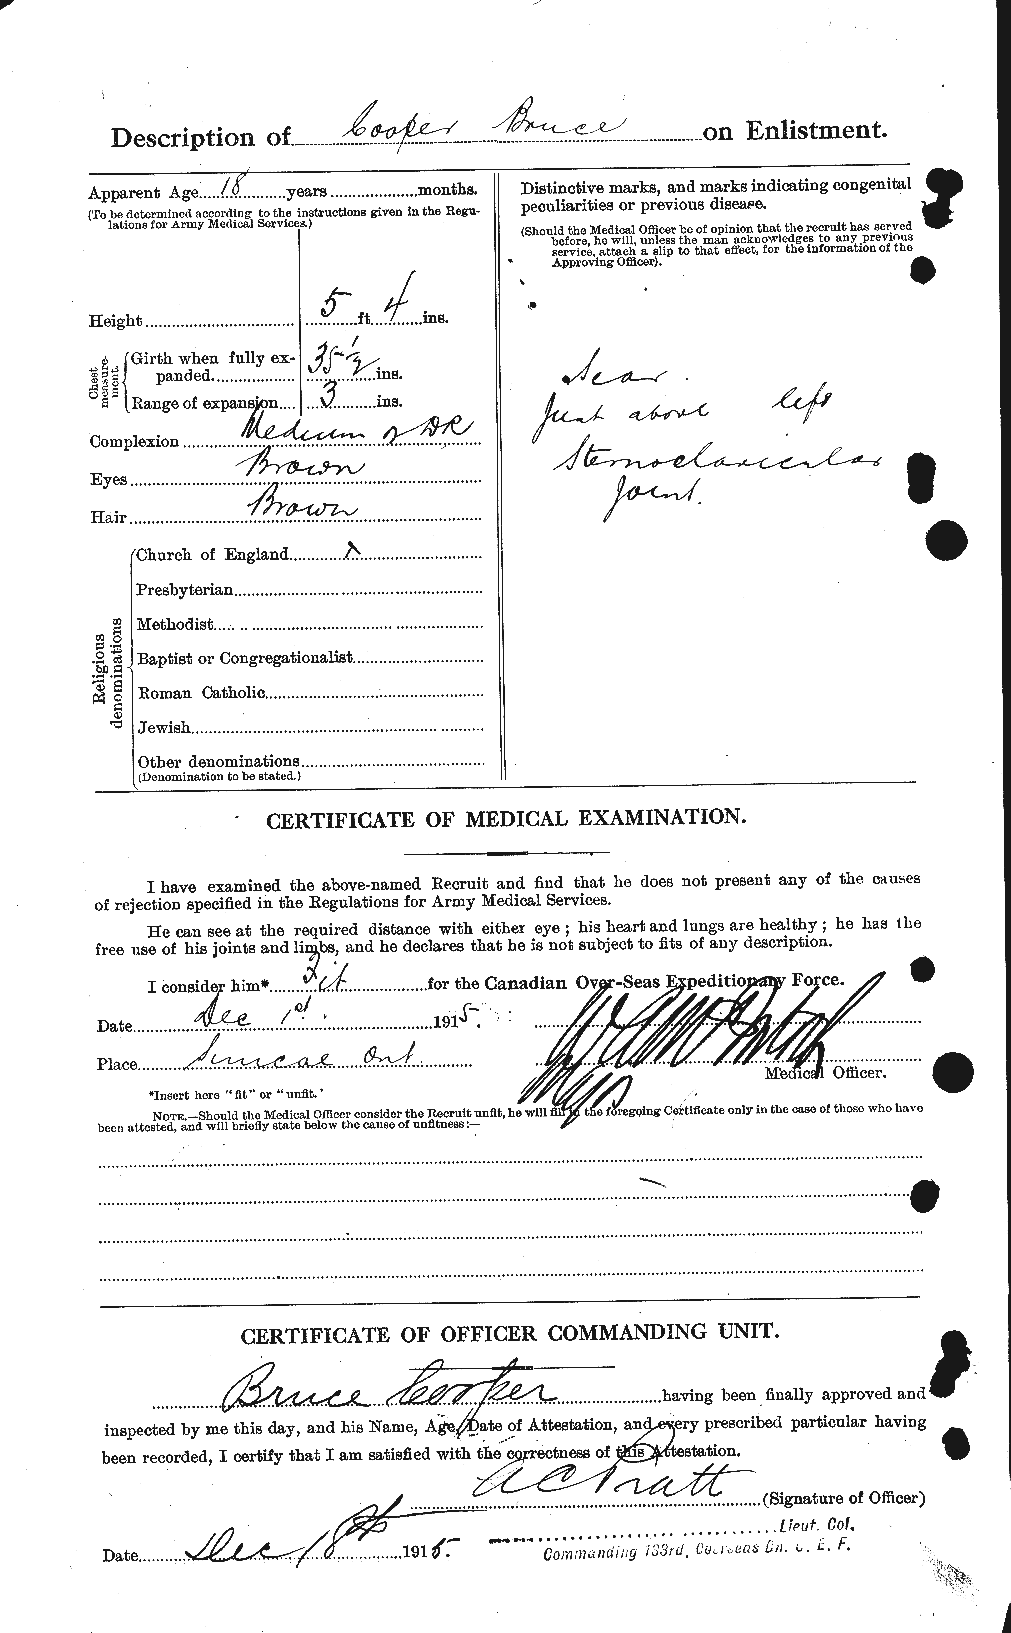 Description of Cooper Bruce on Enlistment.
Apparent Age 18 years months.
(To be determined according to the instructions given in the Regu-
lations for Army Medical Services.)
Height 5 ft. 4 ins.
Chest measurement
Girth when fully ex-
panded 35 1/2 ins.
Range of expansion 3 ins.
Complexion Medium DR
Eyes Brown
Hair Brown
Religious denominations
Church of England X
Presbyterian
Methodist
Baptist or Congregationalist
Roman Catholic
Jewish
Other denominations
(Denomination to be stated.)
Distinctive marks, and marks indicating congenital
peculiarities or previous disease.
(Should the Medical Officer be of opinion that the recruit has served
before, he will, unless the man acknowledges to any previous
service, attach a slip to that effect, for the information of the
Approving Officer).
Scar
Just above left
Sternoclavicular
Joint.
CERTIFICATE OF MEDICAL EXAMINATION.
I have examined the above-named Recruit and find that he does not present any of the causes
of rejection specified in the Regulations for Army Medical Services.
He can see at the required distance with either eye ; his heart and lungs are healthy ; he has the
free use of his joints and limbs, and he declares that he is not subject to fits of any description.
I consider him* Fit for the Canadian Over-Seas Expeditionary Force.
Date Dec 1st. 1915.
Place Simcoe Ont.
Medical Officer.
*Insert here "fit" or "unfit."
NOTE.—Should the Medical Officer consider the Recruit unfit, he will fill in the foregoing Certificate only in the case of those who have
been attested, and will briefly state below the cause of unfitness:—
CERTIFICATE OF OFFICER COMMANDING UNIT.
Bruce Cooper having been finally approved and
inspected by me this day, and his Name, Age, Date of Attestation, and every prescribed particular having
been recorded, I certify that I am satisfied with the correctness of this Attestation.
A C Pratt
(Signature of Officer)
Lieut. Col.
Date Dec 18th 1915.
Commanding 133rd, Overseas Bn. C. E. F.